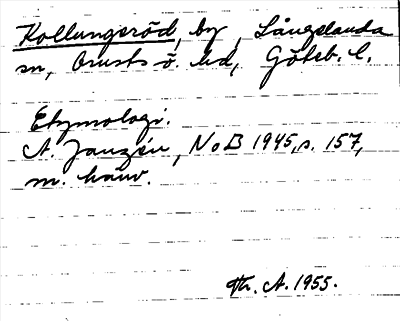 Kollungeröd, by, Långelanda
sn, Orusts ö. hd, Göteb. l.
Etymologi.
A. Janzén, NoB 1945, s. 157,
m. hänv.
Th. A. 1955.